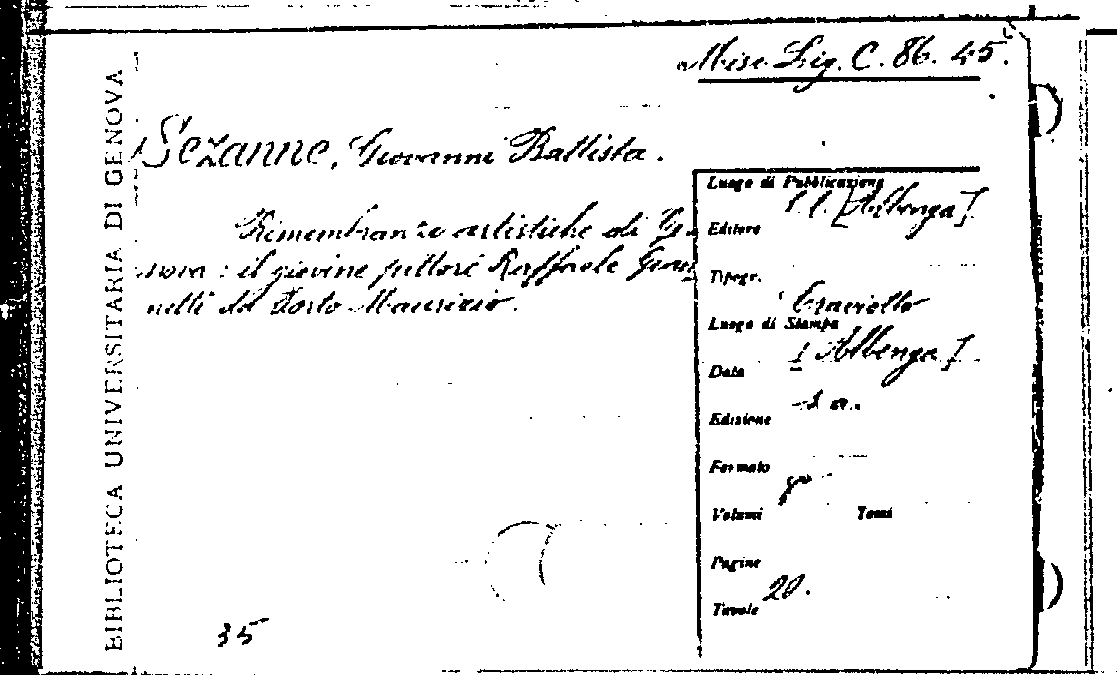 Misc. Lig. C. 86. 45.
BIBLIOTECA UNIVERSITARIA DI GENOVA
Sezanne, Giovanni Battista.
Rimembranze artistiche di Ge-
nova : il giovine pittore Raffaele Giovan
netti da Porto Maurizio.
Luogo di Pubblicazione
s. l. [Albenga].
Editore
Tipogr.
Craviotto
Luogo di Stampa
[Albenga].
Data
s. a.
Edizione
Formato
Volumi Tomi
Pagine
20.
Tavole
35